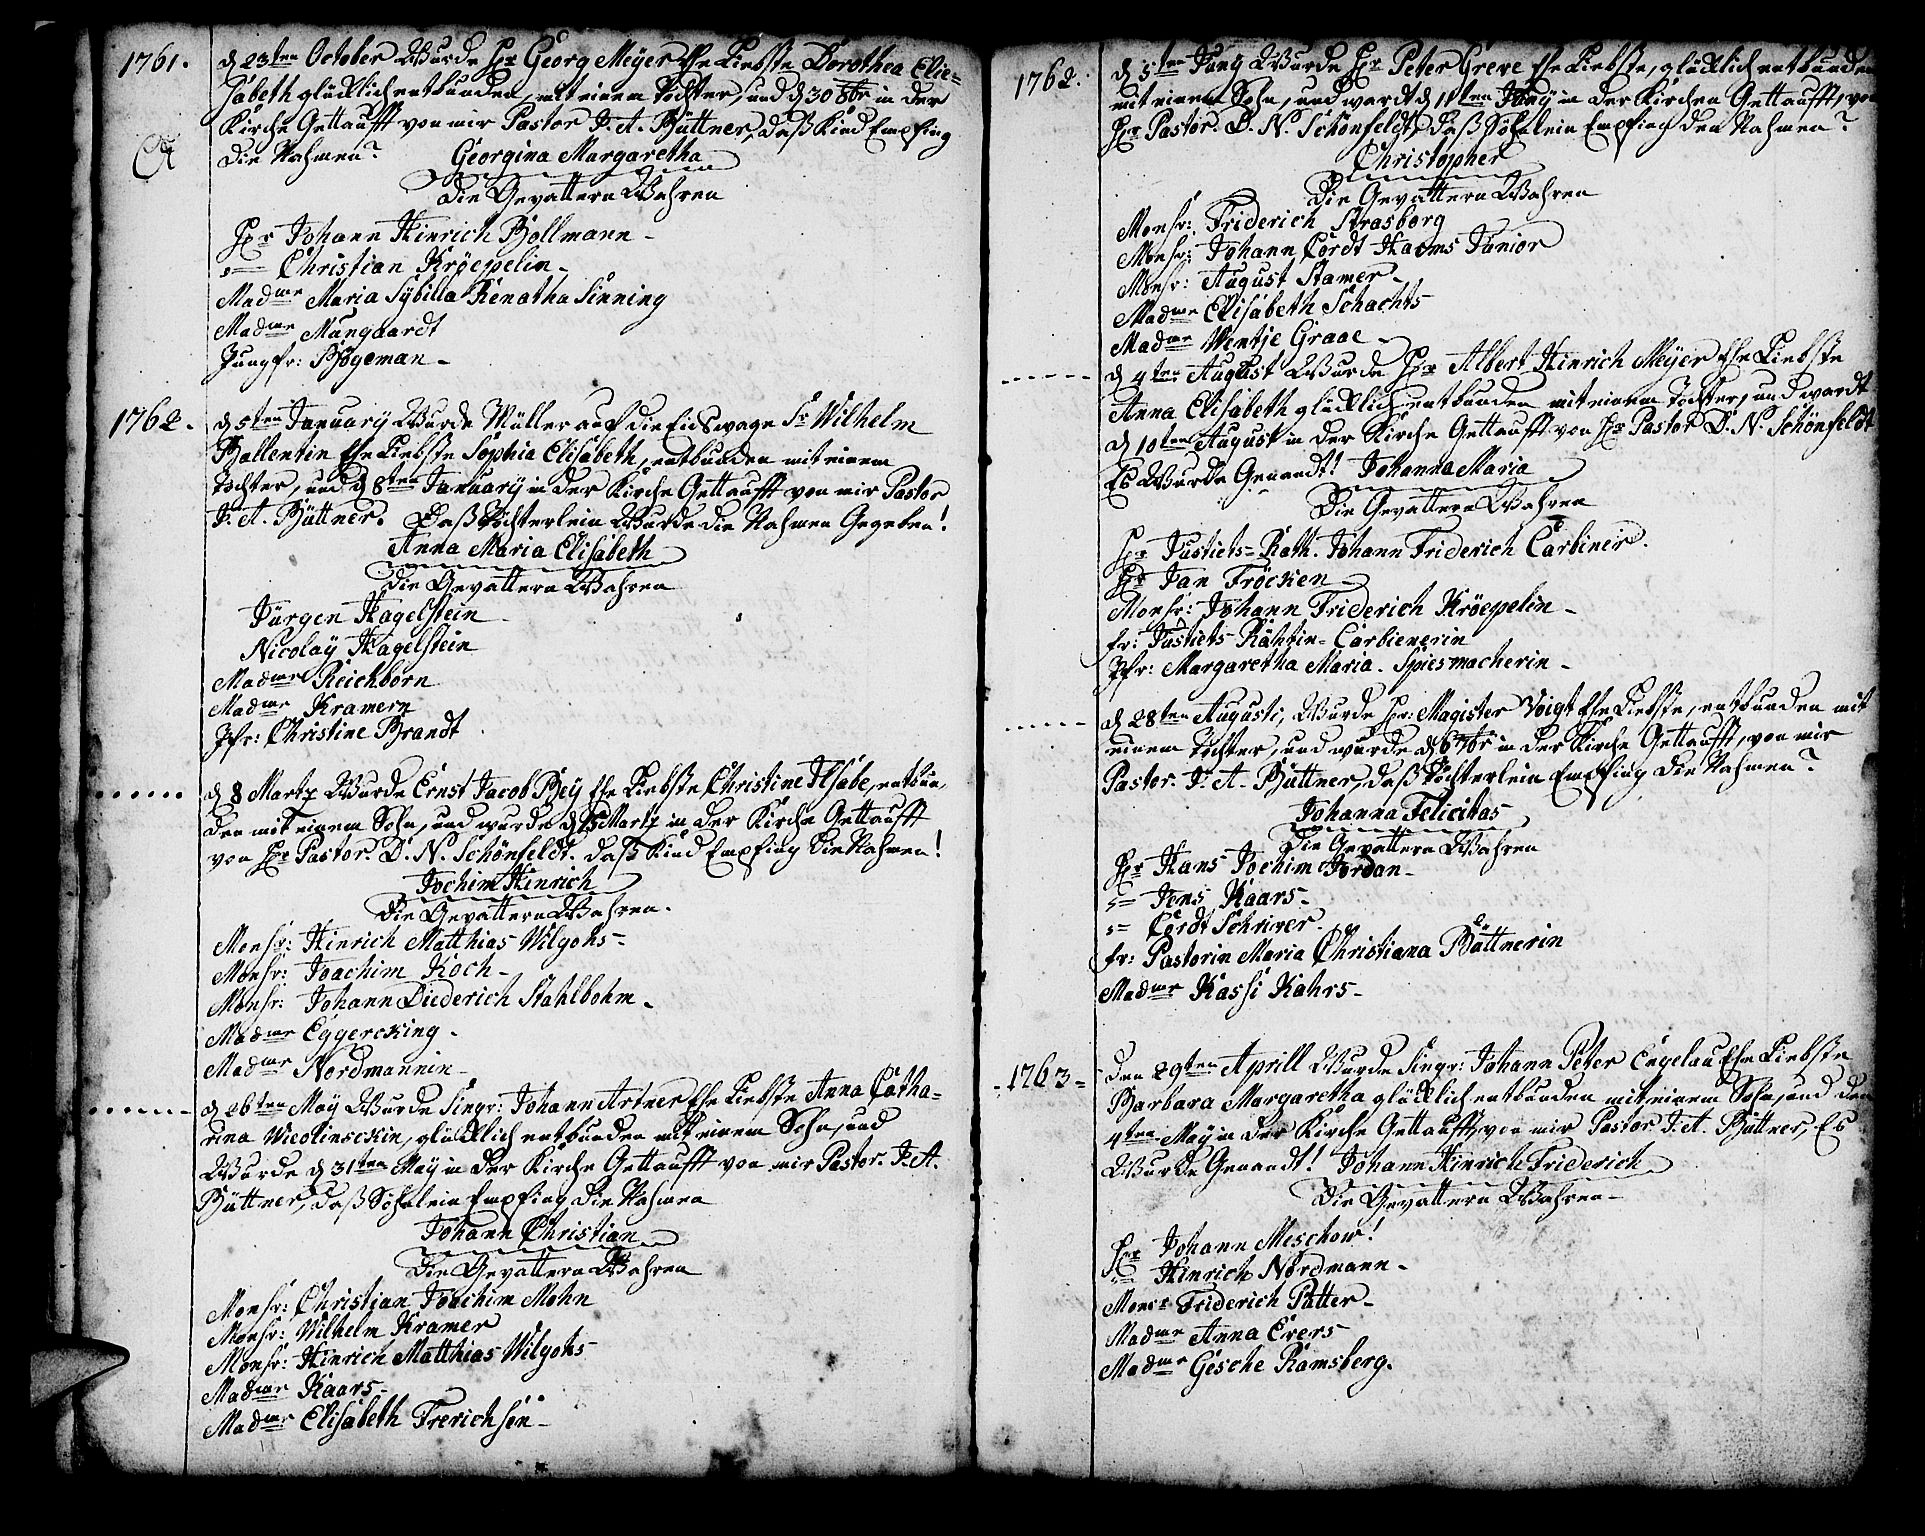 1761. d 23ten October Wurde Hr Georg Meÿer Ehe Liebste Dorothea Elie=
sabeth glücklich entbunden, mit einem Tochter, und d 30 8br in der
Kirche Gettaufft von mir Pastor J. A. Büttner, daß Kind Empfing
die Nahmen? Georgina Margaretha
Die Gevattern Wahren
Hr Johann Hinrich Bollmann -
Christian Kröepelin -
Madme Maria Sÿbilla Renatha Sinning
Madme Mungaardt
Jungfr: Bögeman -
1762. d 5ten Januarÿ Wurde Müller auf die Wilhelm
Ballentin Ehe Liebste Sophia Elisabeth, entbunden mit einem
Tochter, und d 8ten Januarÿ in der Kirche Gettaufft von mir Pastor
J. A. Büttner. Daß Töchterlein Wurde die Nahmen Gegeben!
Anna Maria Elisabeth
Die Gevattern Wahren
Jürgen Hagelstein
Nicolaÿ Hagelstein
Madme Reichborn
Madme Kramern
Jfr: Christine Brandt
d 8 Martz Wurde Ernst Jacob Beÿ Ehe Liebste Christine Ilsabe, entbun,
den mit einem Sohn, und wurde d 15 Martz in der Kirche Gettaufft
von Hr Pastor. D. N. Schönfeldt. daß Kind Empfing die Nahmen!
Jochim Hinrich
Die Gevattern Wahren.
Monsr: Hinrich Matthias Wilgohs -
Monsr: Joachim Koch -
Monsr: Johann Diederich Stahlbohm -
Madme Eggercking -
Madme Nordmannin -
d 26ten Maÿ Wurde Singr: Johann Artner Ehe Liebste Anna Catha=
rina Wieolinsckin, glücklich entbunden mit einem Sohn, und
Wurde d 31ten Maÿ in der Kirche Gettaufft von mir Pastor. J. A.
Büttner, daß Söhnlein Empfing die Nahmen
Johann Christian
Die Gevattern Wahren
Monsr: Christian Joachim Mohn
Monsr: Wilhelm Kramer
Monsr: Hinrich Matthias Wilgohs
Madme Kaars -
Madme Elisabeth Frerichsen -
1762. d 5ten Junÿ Wurde Hr Peter Greve Ehe Liebste, glücklich entbunden
mit einem Sohn, und wardt d 11ten Junÿ in der Kirchen Gettaufft, von
Hr Pastor. D. N. Schönfeldt, daß Söhnlein Empfing den Nahmen?
Christopher
Die Gevattern Wahren
Monsr: Friderich Strasborg
Monsr: Johann Cordt Harms Junior
Monsr: August Stamer -
Madme Elisabeth Schachts
Madme Wentje Graae -
d 4ten August Wurde Hr Albert Hinrich Meÿer Ehe Liebste
Anna Elisabeth glücklich entbunden mit einem Tochter, und wardt
d 10ten August in der Kirche Gettaufft von Hr Pastor D. N. Schönfeldt
Es Wurde Genandt! Johanna Maria
Die Gevattern Wahren
Hr Justiets-Rath. Johann Friderich Carbiner.
Hr Jan Fröcken -
Monsr: Johann Friderich Kröepelin -
fr: Justiets-Räthin - Carbienerin
Jfr: Margaretha Maria. Spiesmacherin -
d 28ten Augusti, Wurde Hr: Magister Voigt Ehe Liebste, entbunden mit
einem Tochter, und wurde d 6 7br in der Kirche Gettaufft, von mir
Pastor. J. A. Büttner, daß Töchterlein Empfing die Nahmen?
Johanna Felicitas
Die Gevattern Wahren
Hr Hans Jochim Jordan -
Jens Kaars -
Cordt Schriver.
fr: Pastorin Maria Christiana Büttnerin
Madme Kassi Kahrs -
1763 - Den 29ten Aprill Wurde Singr: Johann Peter Engelau Ehe Liebste
Barbara Margaretha glücklich entbunden mit einem Sohn, und den
4ten Maÿ in der Kirche Gettaufft, von mir Pastor J. A. Büttner, Es
Wurde Genandt! Johann Hinrich Friderich
Die Gevattern Wahren -
Hr Johann Meschow!
Hinrich Nordmann -
Monsr Friderich Pätter -
Madme Anna Evers
Madme Gesche Ramsberg.